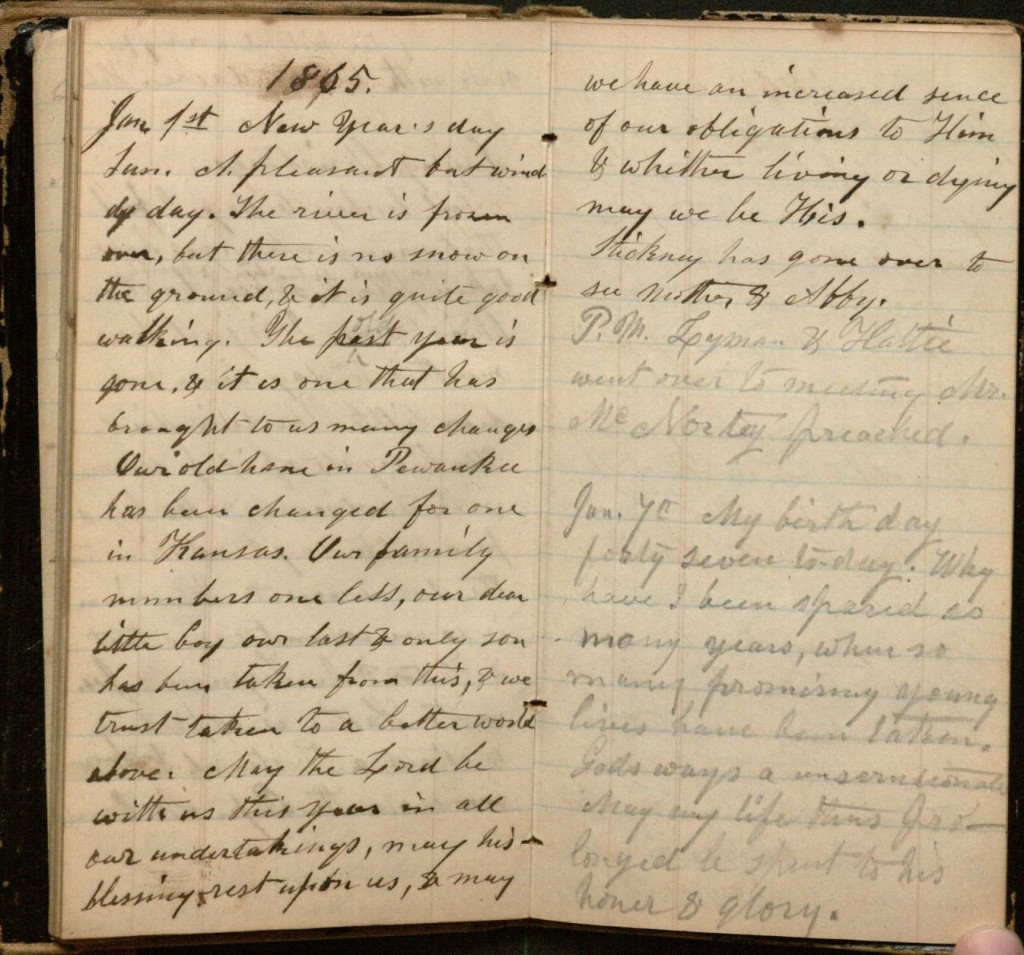 1865.
Jan. 1st New Year's day
Sun. A pleasant but wind
dy day. The river is frozen
over, but there is no snow on
the ground, & it is quite good
walking. The past old year is
gone, & it is one that has
brought to us many changes
Our old home in Pewaukee
has been changed for one
in Kansas. Our family
numbers one less, our dear
little boy our last & only son
has been taken from this, & we
trust taken to a better world
above. May the Lord be
with us this year in all
our undertakings, may his
blessing rest upon us, & may
we have an increased sence
of our obligations to Him
& whither living or dying
may we be His.
Stickney has gone over to
see Mother & Abby.
P.M. Lyman & Hattie
went over to meeting Mr.
Mc preached.
Jan. 7th My birth day
forty seven to-day. Why
have I been spared so
many years, when so
many promising young
lives have been taken.
Gods ways a
May my life thus pro-
longed be spent to his
honer & glory.